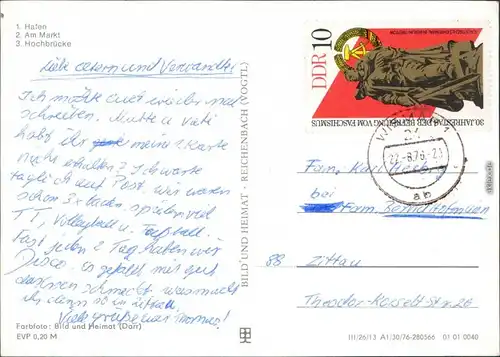 1. Hafen
2. Am Markt
3. Hochbrücke
Liebe Eltern und Verwandte!
Ich möchte euch wieder mal
schreiben. Mutti u Vati
habt ihr meine 2 Karte
nicht erhalten? Ich warte
täglich auf Post. Wir waren
schon 3x baden spielen viel
TT, Volleyball u. Fußball.
Fast jeden 2 Tag haben wir
Disco. es gefällt mir gut
das Essen schmeckt. was macht
ihr denn so in Zittau.
Viele Grüße euer
Farbfoto: Bild und Heimat (Darr)
EVP 0,20 M
BILD UND HEIMAT · REICHENBACH (VOGTL)
DDR 10
30. JAHRESTAG DER BEFREIUNG VOM FASCHISMUS
WISMAR 1
24
22.-8.76.-23
ab
Fam. Karl
bei Fam.
88 Zittau
Theodor-Korselt Str. 26
III/26/13 A1/30/76-280566 01 01 0040